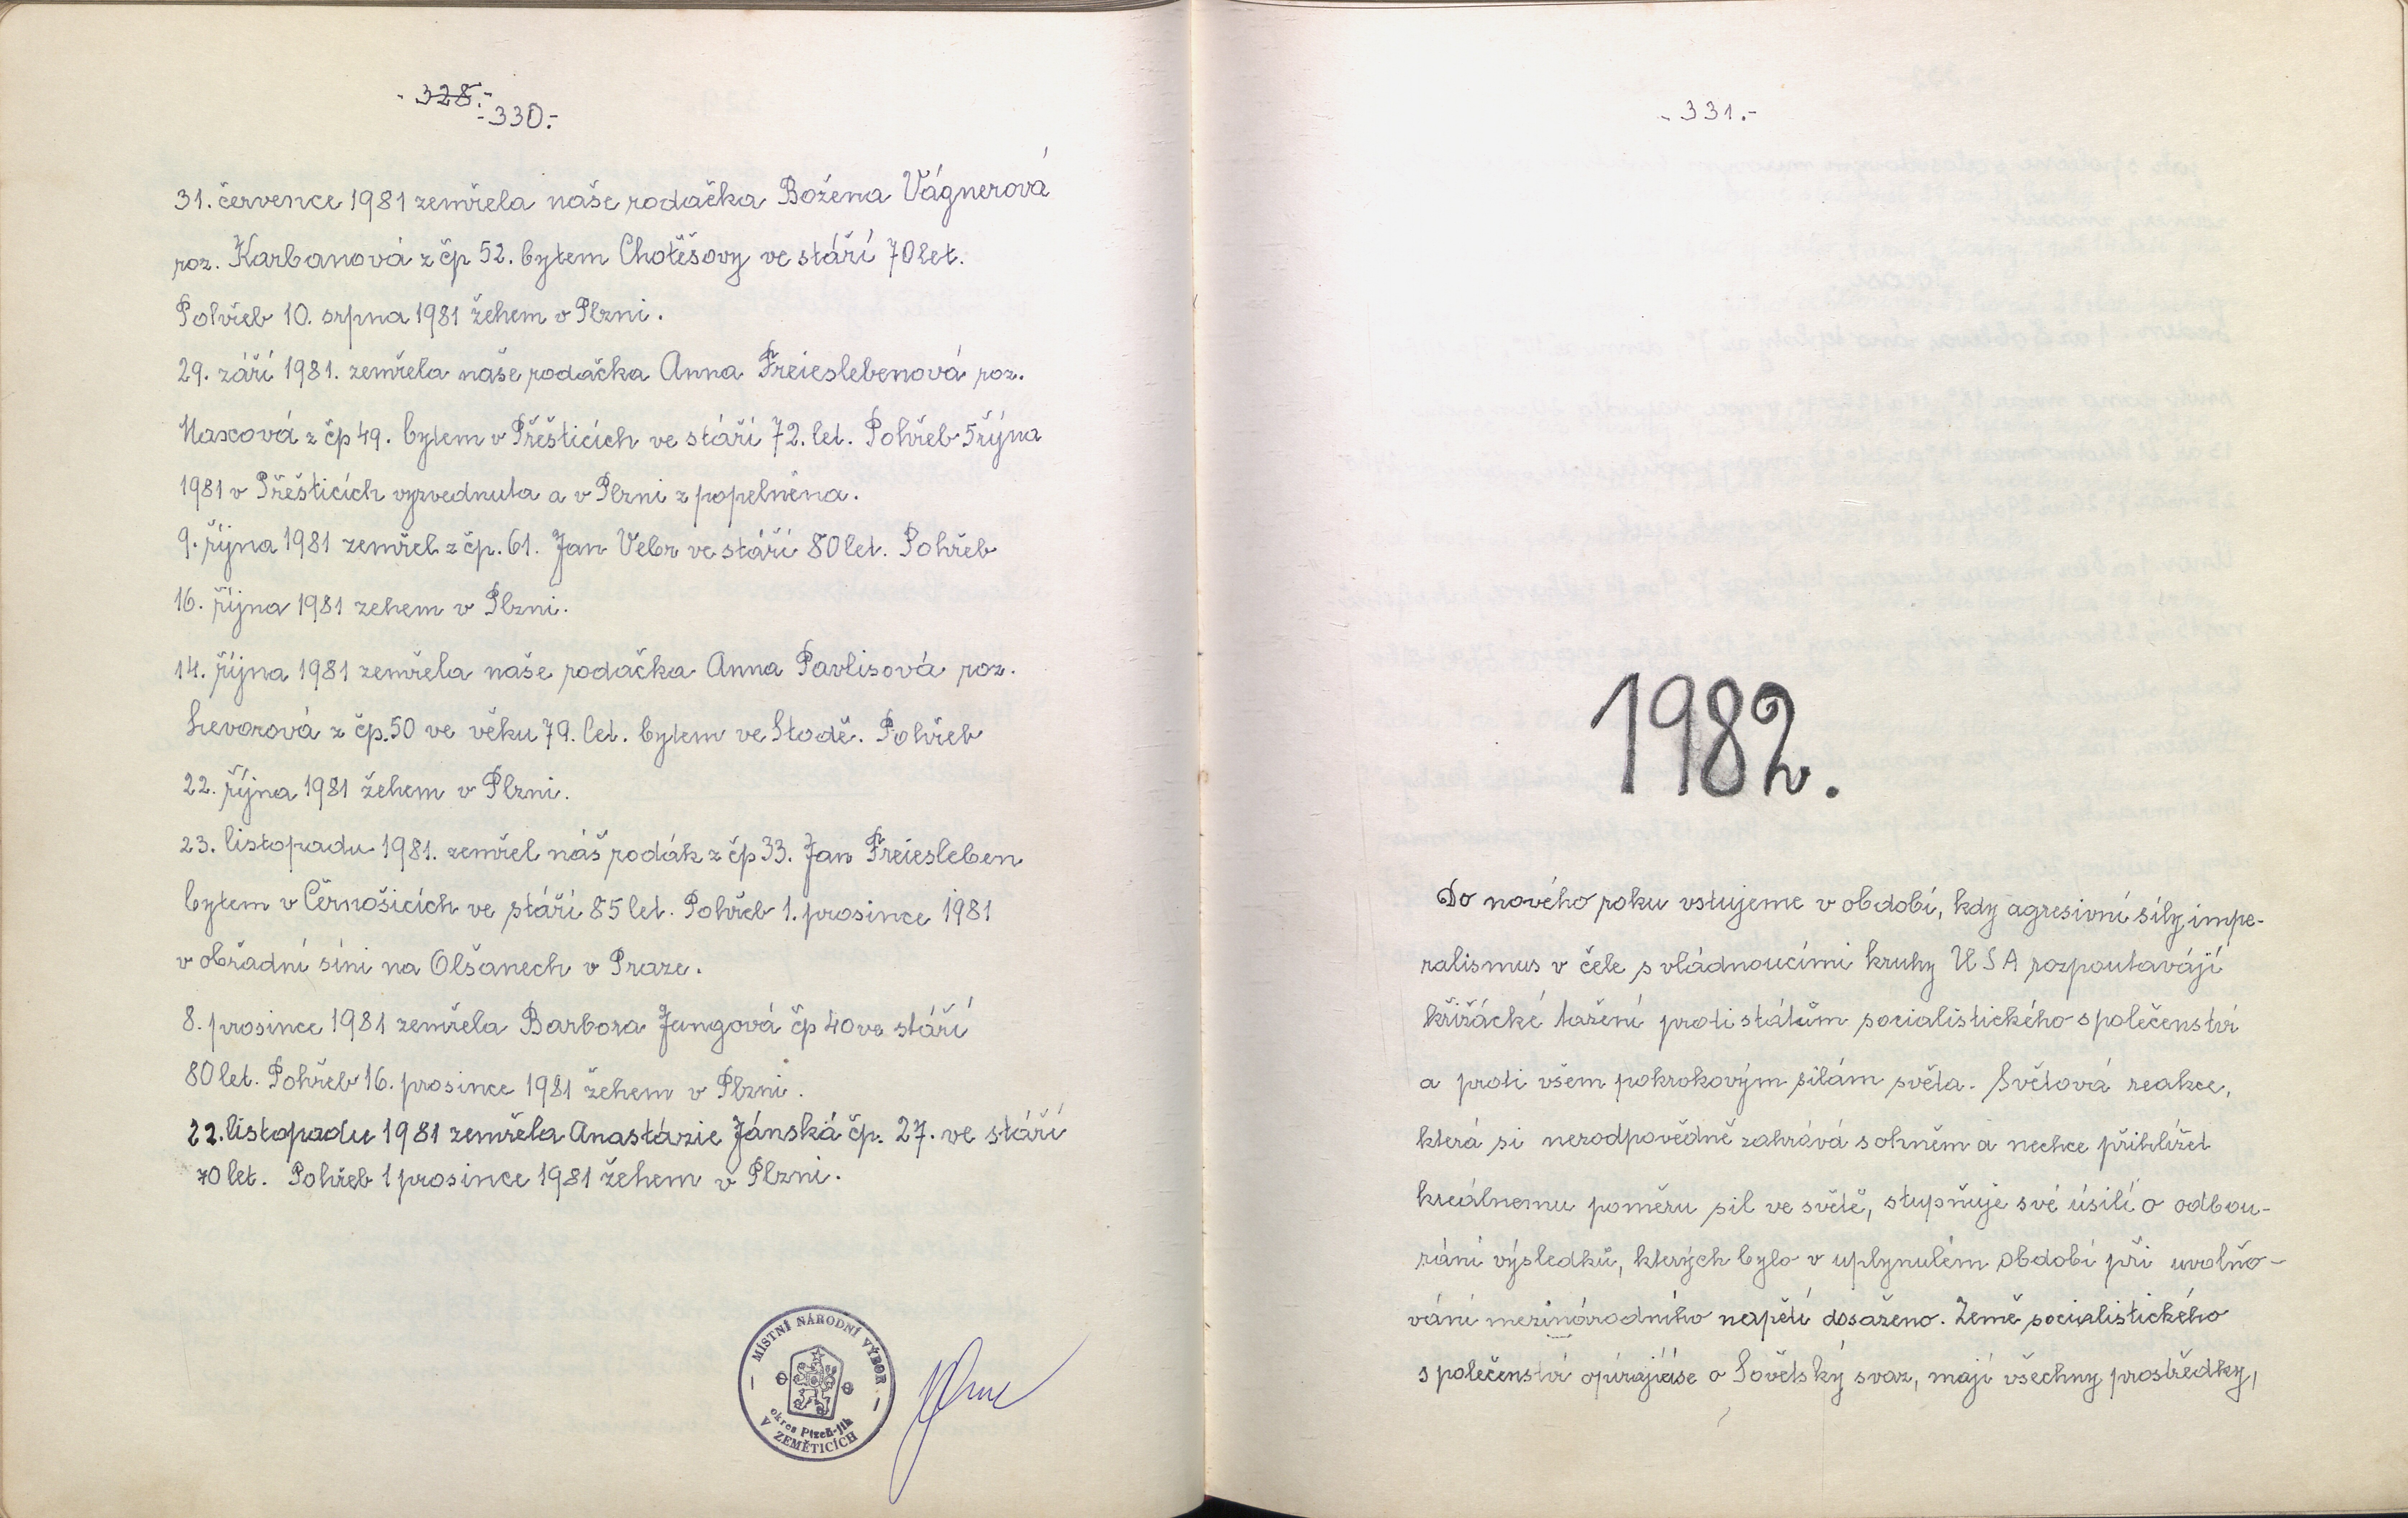 - 328.-
-330.-
31. července 1981 zemřela naše rodačka Božena Vágnerová
roz. Karbanová z čp 52. bytem Chotěšovy ve stáří 70 let.
Pohřeb 10. srpna 1981 žehem v Plzni.
29. září 1981. zemřela naše rodačka Anna Freieslebenová roz.
Maxová z čp 49. bytem v Přešticích ve stáří 72. let. Pohřeb 5 října
1981 v Přešticích vyzvednuta a v Plzni z popelněna.
9. října 1981 zemřel z čp. 61. Jan Vebr ve stáří 80 let. Pohřeb
16. října 1981 zehem v Plzni.
14. října 1981 zemřela naše rodačka Anna Pavlisová roz.
Levorová z čp. 50 ve věku 79. let. bytem ve Stodě. Pohřeb
22. října 1981 žehem v Plzni.
23. listopadu 1981. zemřel náš rodák z čp 33. Jan Freiesleben
bytem v Černošicích ve stáří 85 let. Pohřeb 1. prosince 1981
v obřadní síni na Olšanech v Praze.
8. prosince 1981 zemřela Barbora Jungová čp 40 ve stáří
80 let. Pohřeb 16. prosince 1981 žehem v Plzni.
22. listopadu 1981 zemřela Anastázie Jánská čp. 27. ve stáří
70 let. Pohřeb 1 prosince 1981 žehem v Plzni.
MÍSTNÍ NÁRODNÍ VÝBOR
okres Plzeň-jih
V ZEMĚTICÍCH
- 331.-
1982.
Do nového roku vstujeme v období, kdy agresivní síly impe-
ralismus v čele s vládnoucími kruhy USA rozpoutavájí
křižácké tažení proti státům socialistického společenství
a proti všem pokrokovým silám světa. Světová reakce,
která si nezodpovědně zahrává s ohněm a nechce přihlížet
kreálnemu poměru sil ve světě, stupňuje své úsilí o odbou-
rání výsledků, kterých bylo v uplynulém období při uvolňo-
vání mezinárodního napětí dosaženo. Země socialistického
společenství opírajícíse o Sovětský svaz, mají všechny prostředky,